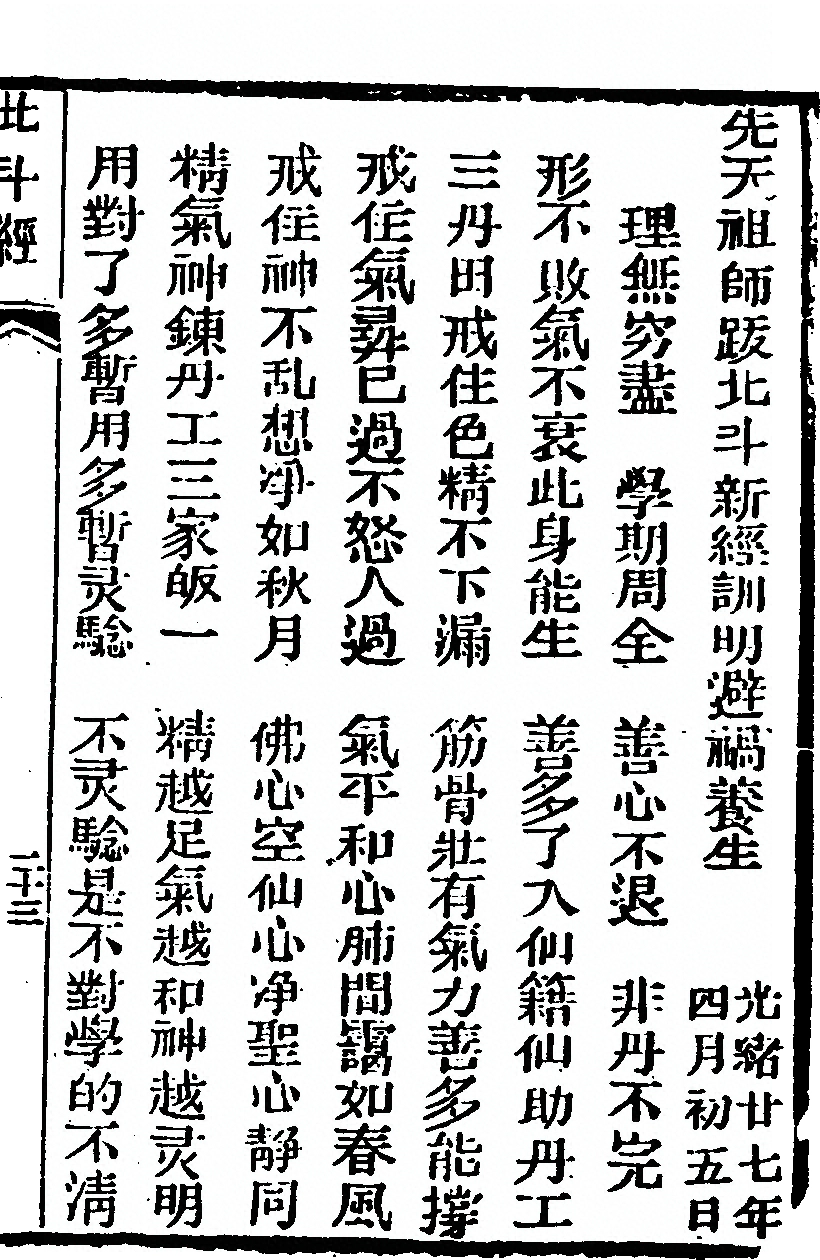 先天祖師跋北斗新經訓明避禍養生 光緒廿七年四月初五日
理無穷盡 學期周全 善心不退 非丹不完
形不敗氣不衰此身能生 善多了入仙籍仙助丹工
三丹田戒住色精不下漏 筋骨壯有氣力善多能撐
戒住氣尋已過不怒人過 氣平和心肺間靄如春風
戒住神不乱想净如秋月 佛心空仙心净聖心靜同
精氣神鍊丹工三家皈一 精越足氣越和神越灵明
用對了多暫用多暫灵騐 不灵騐是不對學的不清
北斗經
二十三